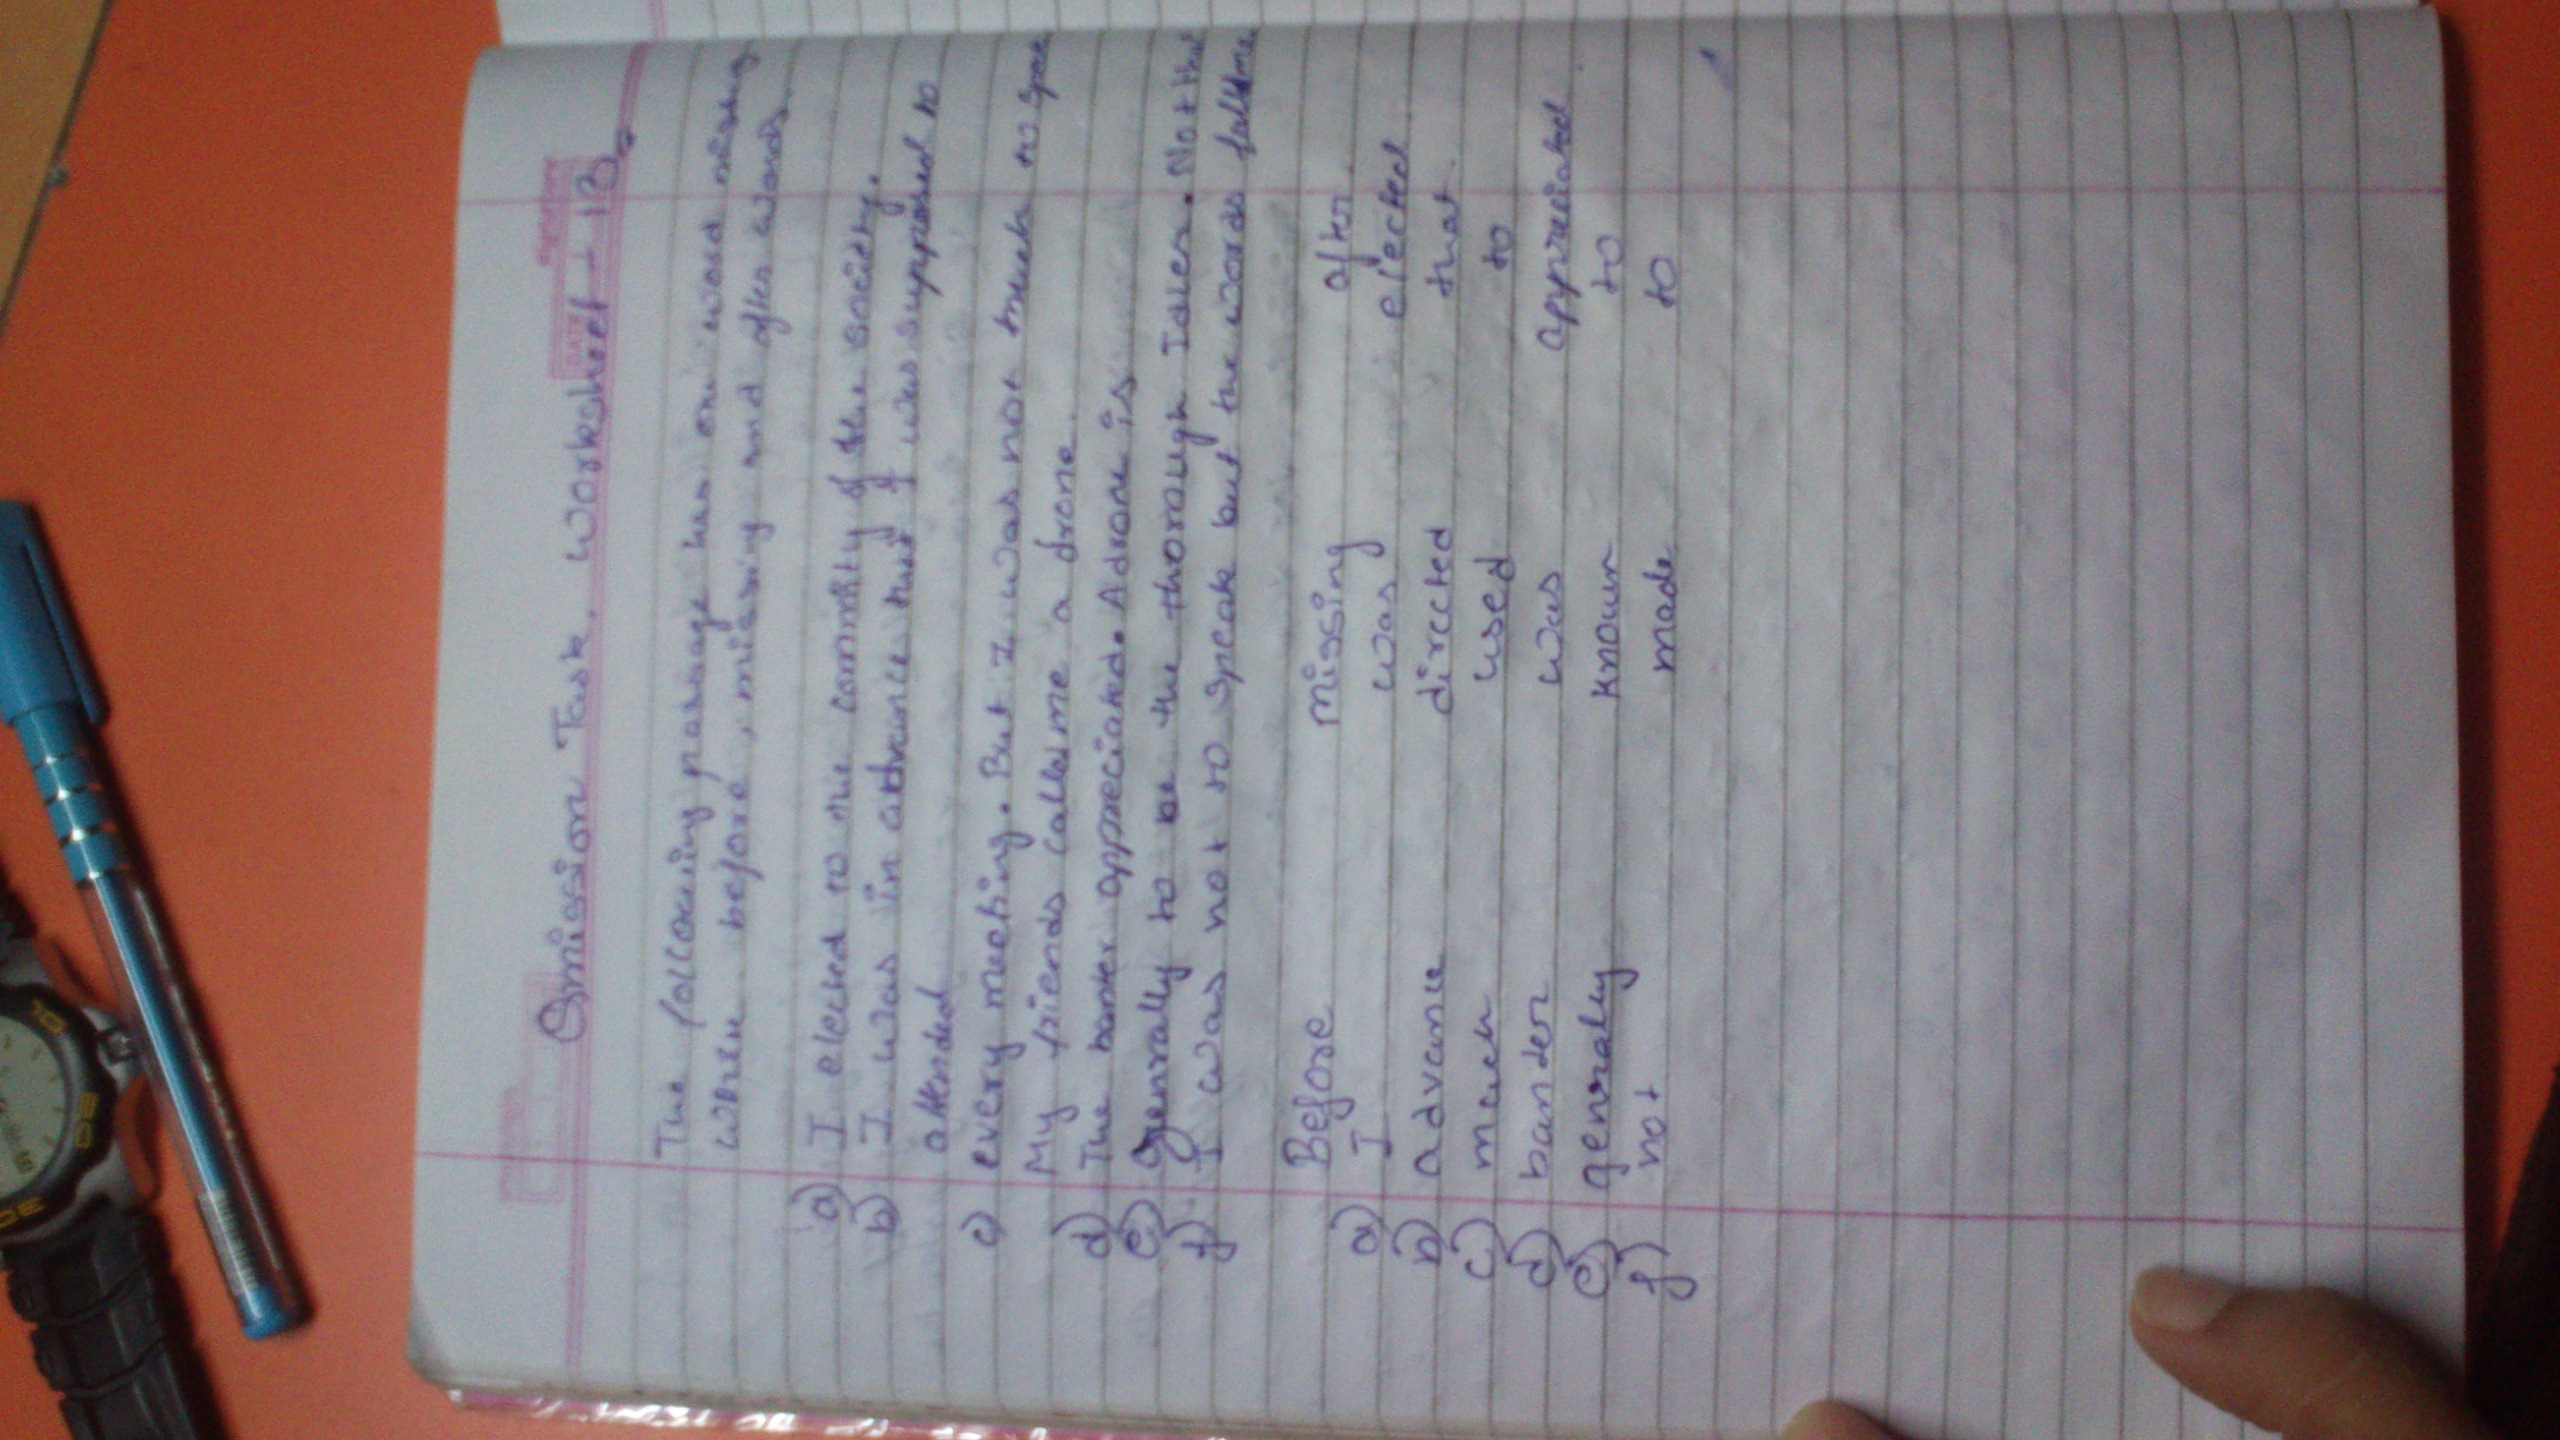 Omission Task. Worksheet - 13
The following passage has one word missing
write before, missing and after words.
a) I elected to the commity of the society.
b) I was in advance that I was supposed to
attended
c) every meeting. But I was not much to speak
My friends called me a drone.
d) The banter appreciated. A drone is
e) genrally to be the thorough Idler. Not that
f) I was not to speak but the words fall me
Before missing after
a) I was elected
b) advance directed that
c) much used to
d) banter was appreciated
e) genrally known to
f) not made to